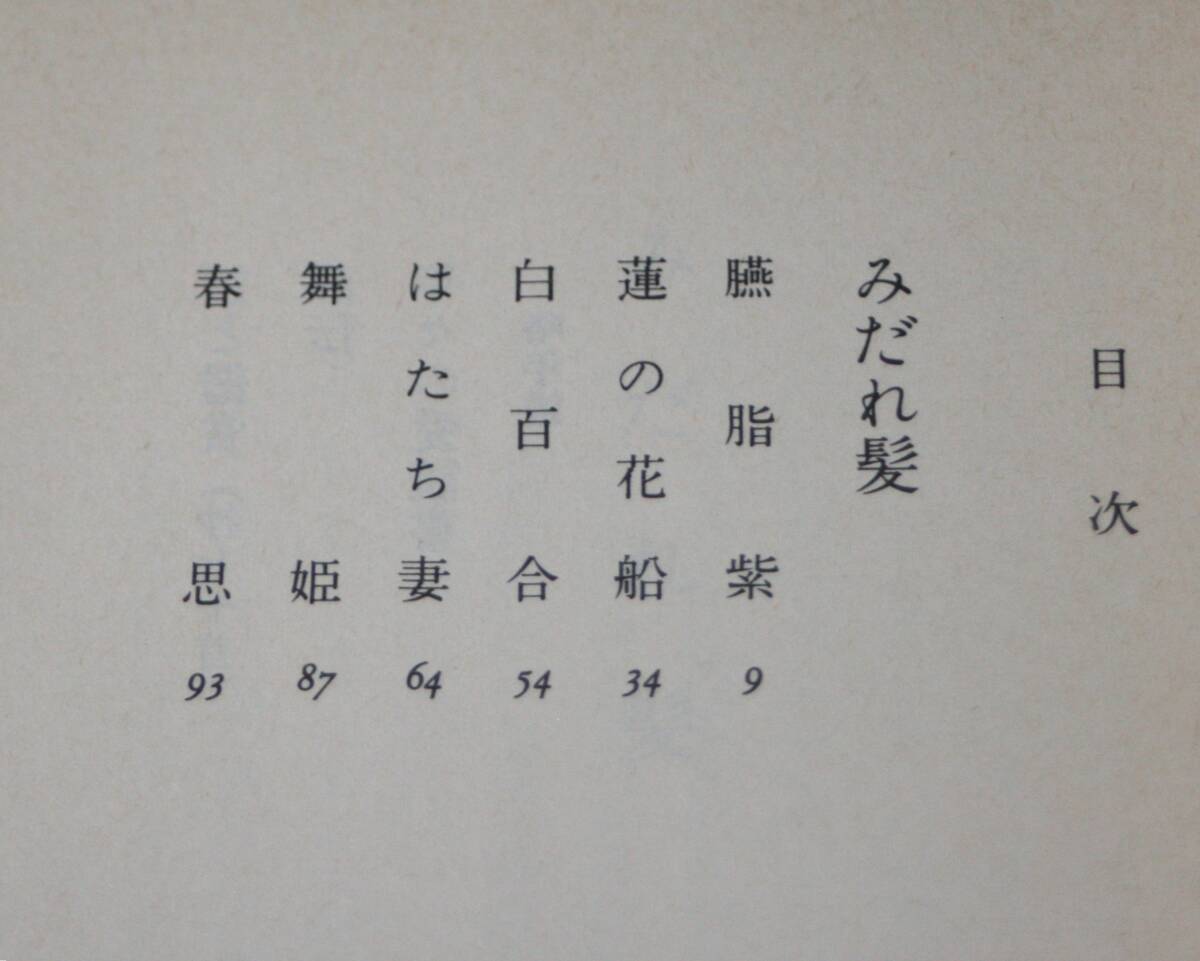 目次
みだれ髪
臙脂紫 9
蓮の花船 34
白百合 54
はたち妻 64
舞姫 87
春思 93